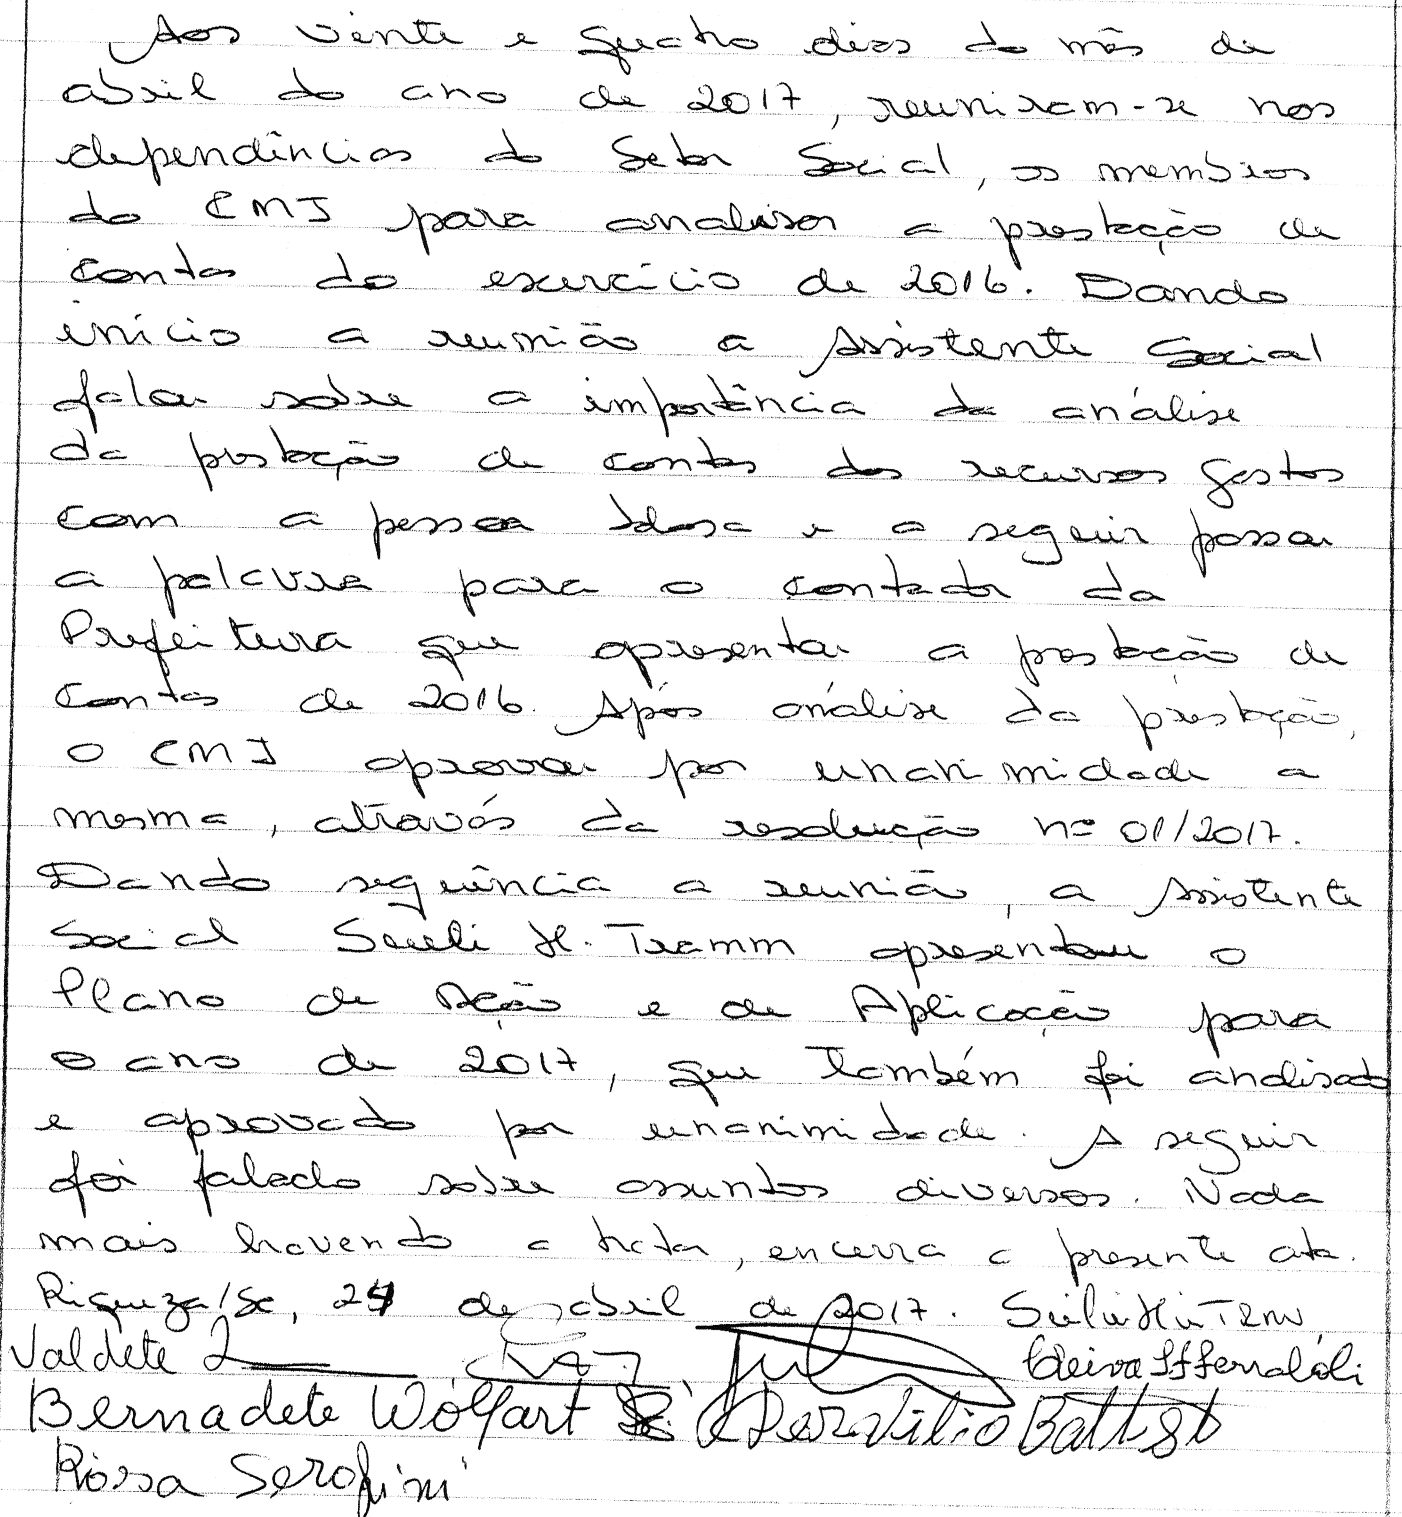 Aos vinte e quatro dias do mês de
abril do ano de 2017, reuniram-se nas
dependências do Setor Social, os membros
do CMI para analisar a prestação de
contas do exercício de 2016. Dando
início a reunião a Assistente Social
falou sobre a importância da análise
da prestação de contas dos recursos gastos
com a pessoa Idosa e a seguir passou
a palavra para o contador da
Prefeitura que apresentou a prestação de
contas de 2016. Após análise da prestação,
o CMI aprovou por unanimidade a
mesma, através da resolução nº 01/2017.
Dando sequência a reunião, a Assistente
Social Sueli H. Tramm apresentou o
Plano de Ação e de Aplicação para
o ano de 2017, que também foi analisado
e aprovado por unanimidade. A seguir
foi falado sobre assuntos diversos. Nada
mais havendo a tratar, encerra a presente ata.
Riqueza/SC, 24 de abril de 2017.
Valdete
Bernadete Wolfart Dervilio Battisti
Rossa Serafini